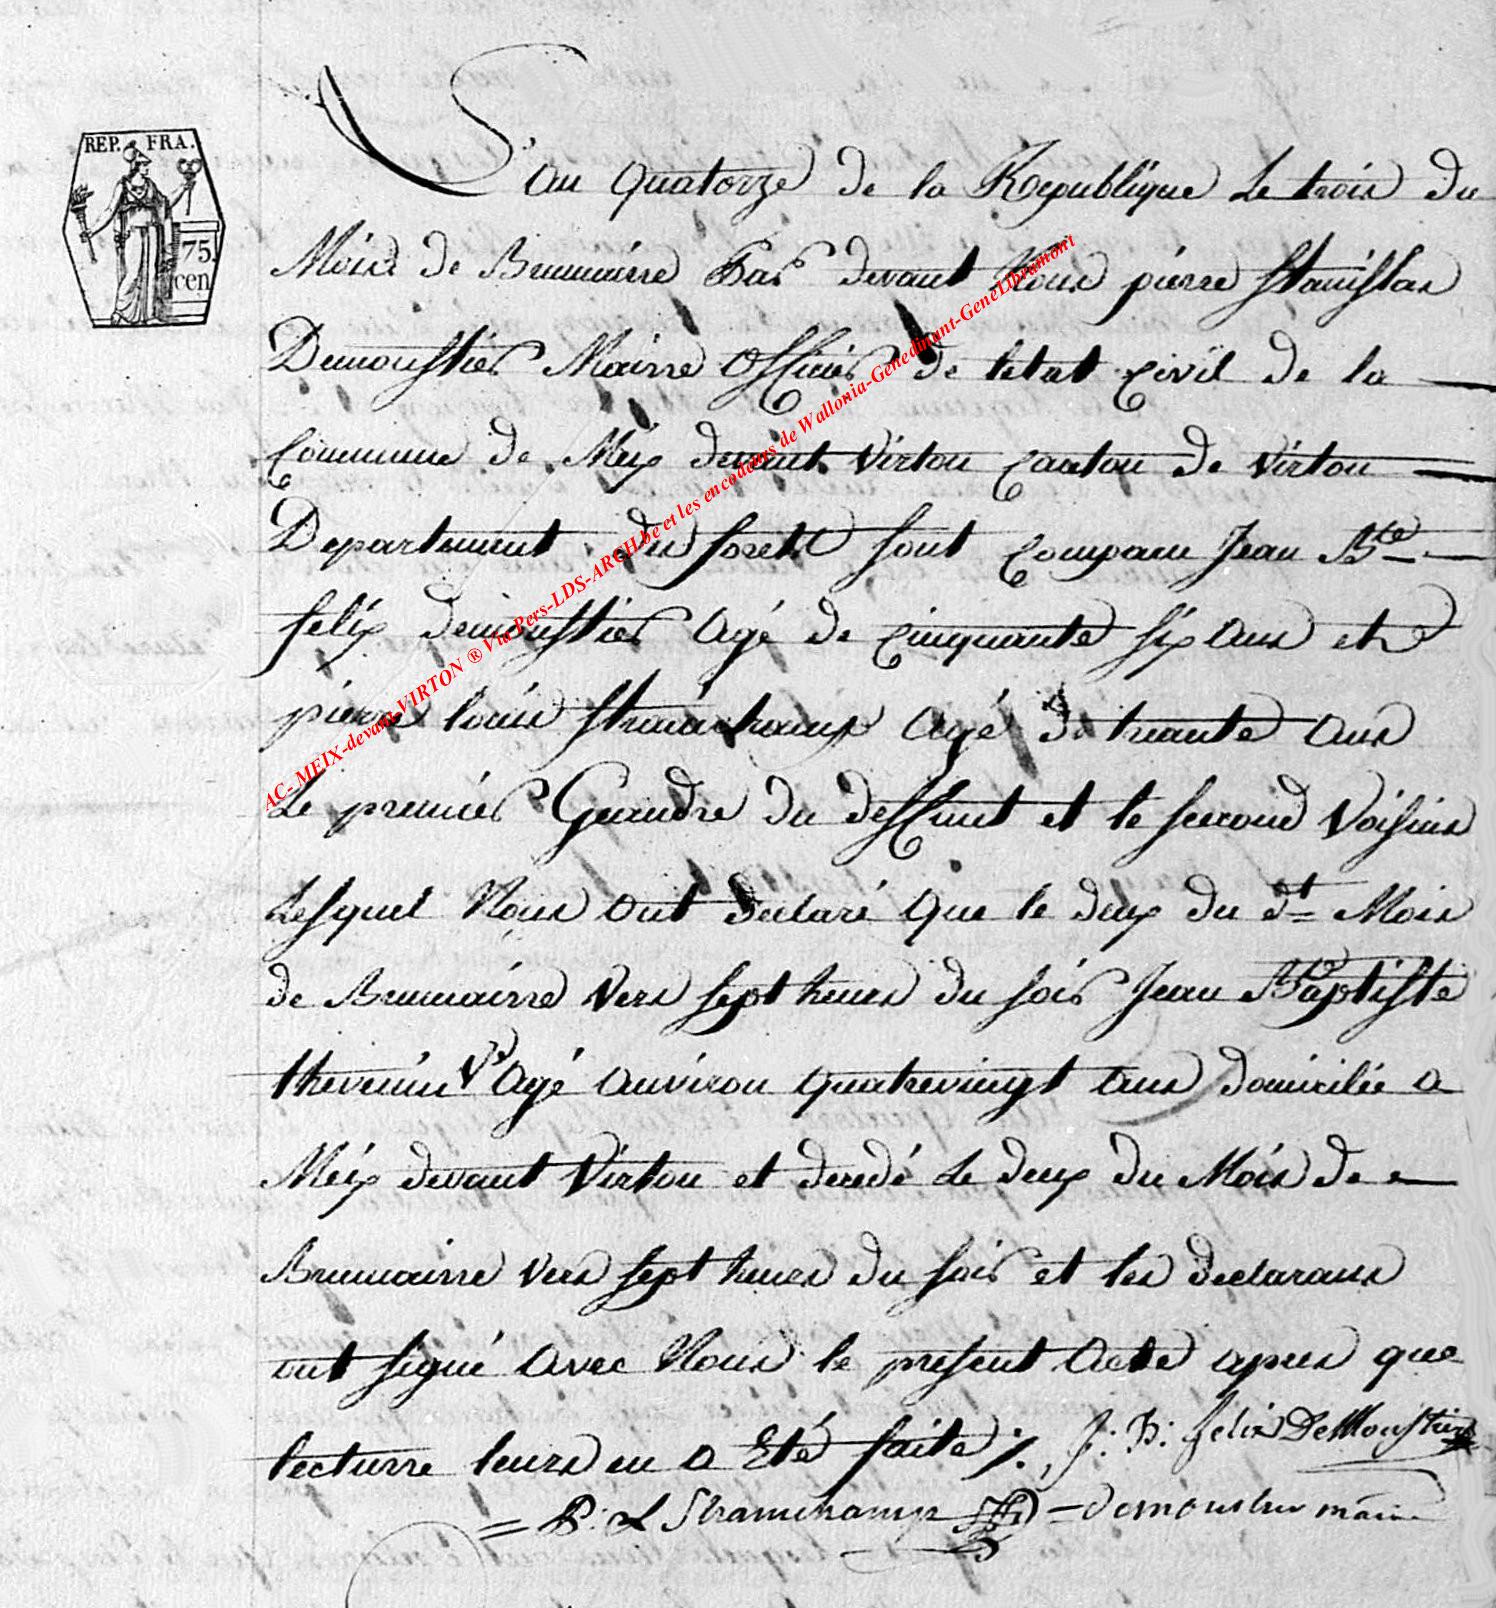 REP. FRA.
75.
cen.
L'an quatorze de la Republique Le trois du
Mois de Brumairre Par devant Nous piérre stanislas
Demoustier Mairre Officier de letat civil de la
Commune de Méix devant Virton canton de Virton
Departement du foret sont comparu Jean Bte
felix demoustier agé de cinquante six ans et
piérre louis straimchamps agé de trante ans
Le premier Geandre du deffunt et le second Voisins
Lesquel Nous ont declaré que le deux du dt Mois
de Brumairre vers sept heures du soir Jean Baptiste
thevenin Vf agé anviron quatrevingt ans domicilié a
Méix devant Virton et decedé Le deux du Mois de
Brumairre vers sept heures du soir et les declarans
ont signé avec Nous le present acte apres que
lecturre leurs en a Eté faite ./. J: B: felix DeMoustier
= P: L Strainchamps = demoustier maire
AC- MEIX-devant-VIRTON ® Via Pers-LDS-ARCH.be et les encodeurs de Wallonia-Genedinant-GeneLibramont